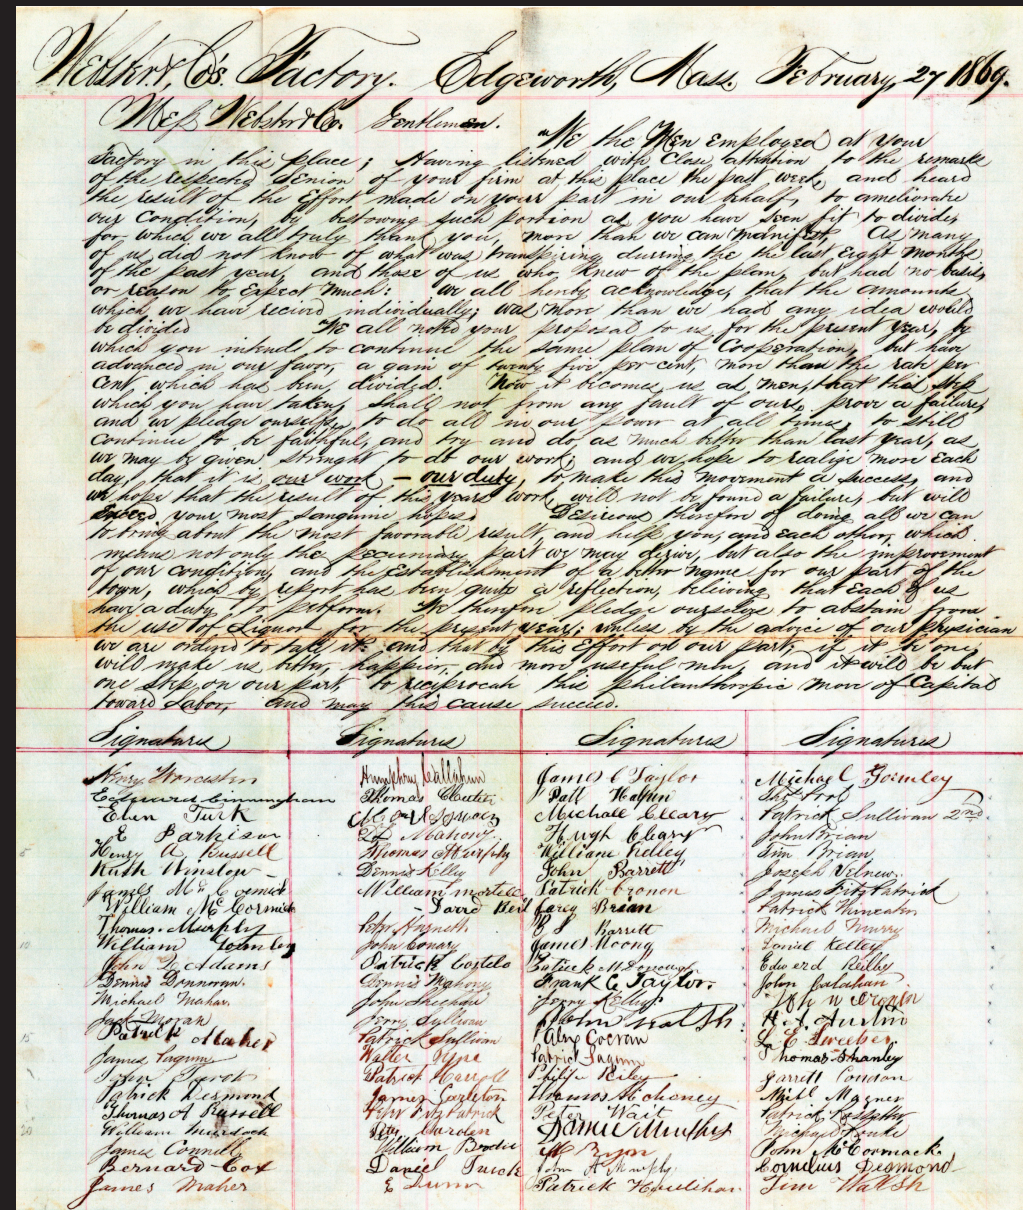 Webster & Co's Factory. Edgeworth, Mass. February, 27 1869.
Mess Webster & Co. Gentlemen. "We the Men employed at your
Factory in this place; Having listened with Close attention to the remarks
of the respected Senior of your firm at this place the past week, and heard
the result of the Effort made on your part in our behalf, to ameliorate
our Condition, by bestowing such portion as you have seen fit to divide,
for which we all truly thank you, more than we can manifest, As many
of us did not know of what was transpiring durring the the last Eight months
of the past year, and those of us who knew of the plan, but had no basis,
or reason to Expect much: we all hereby acknowledge, that the amounts
which we have recievd individually; was more than we had any idea would
be divided We all noted your proposal to us, for the present year, by
which you intend, to continue the same plan of Cooperation, but have
advanced in our favor, a gain of twenty five per cent, more than the rate per
Cent, which has been divided. Now it becomes us as men, that this step
which you have taken, shall not from any fault of ours, prove a failure,
and we pledge ourselves, to do all in our power at all times, to still
continue to be faithful, and try and do, as much better than last year, as
we may be given strenght to do our work; and we hope to realize more Each
day, that it is our work - our duty, to make this movement a success, and
we hope that the result of this years work, will not be found a failure, but will
Exceed your most sanguine hopes. Desireous therefore of doing all we can
to bring about the most favorable result, and help you, and each other, which
means not only the pecuniary part we may derive, but also the improvement
of our condition, and the Establishment of a better name for our part of the
town, which by report has been quite a reflection, believing that Each of us
have a duty to perform. We therefore pledge ourselves to abstain from
the use of Liquor for the present year; unless by the advice of our physician
we are ordered to take it: and that by this Effort on our part, if it be one,
will make us better, happier, and more useful men, and it will be but
one step on our part, to reciprocate this philanthropic move of Capital
toward Labor, and may this cause succeed.
Signatures Signatures Signatures Signatures
Henry Worcester
Edward Cunningham
Eben Turk
E Parkison
Henry A Russell
Ruth Winslow
James McCormick
William McCormick
Thomas Murphy
William
John Q Adams
Dennis Donnovan
Michael Mahar
Jack Moran
Patrick Maher
James
John
Patrick Desmond
Thomas A Russell
William Murdock
James Connell
Bernard Cox
James Maher
Humphrey Callahan
Thomas
D Mahony
Thomas Murphy
Dennis Kelley
William
David
Peter
John Conary
Patrick Costelo
Dennis Mahony
John Sheehan
Jerry Sullivan
Patrick Sullivan
Walter
Patrick Carroll
James Carleton
Fitzpatrick
Tim Carolen
William
Daniel
E Dunn
James C Taylor
Patt Halpin
Michale Cleary
Hugh Cleary
William Kelley
John Barrett
Patrick Cronon
Brian
Barrett
James Moony
Patrick McDonough
Frank E Taylor.
Jerry Kelley
John Walsh.
Alex Cocran
Patrick
Philip Riley
Thomas Mchoney
Peter Wait
Daniel Murphy
M Ryan
John A Murphy
Patrick Houlihan
Michael Gormley
Patrick Sullivan 2nd
John Brian
Tim Brian
Joseph
James Fitzpatrick
Patrick
Michael Murry
Daniel Kelley
Edwerd Reilley
John Calahan
John Cronin
H. A. Austin
E.
Thomas Shanley
Garrett Condon
Magner
Patrick
Michael
John McCormack
Cornelius Desmond
Tim Walsh
5
10
15
20